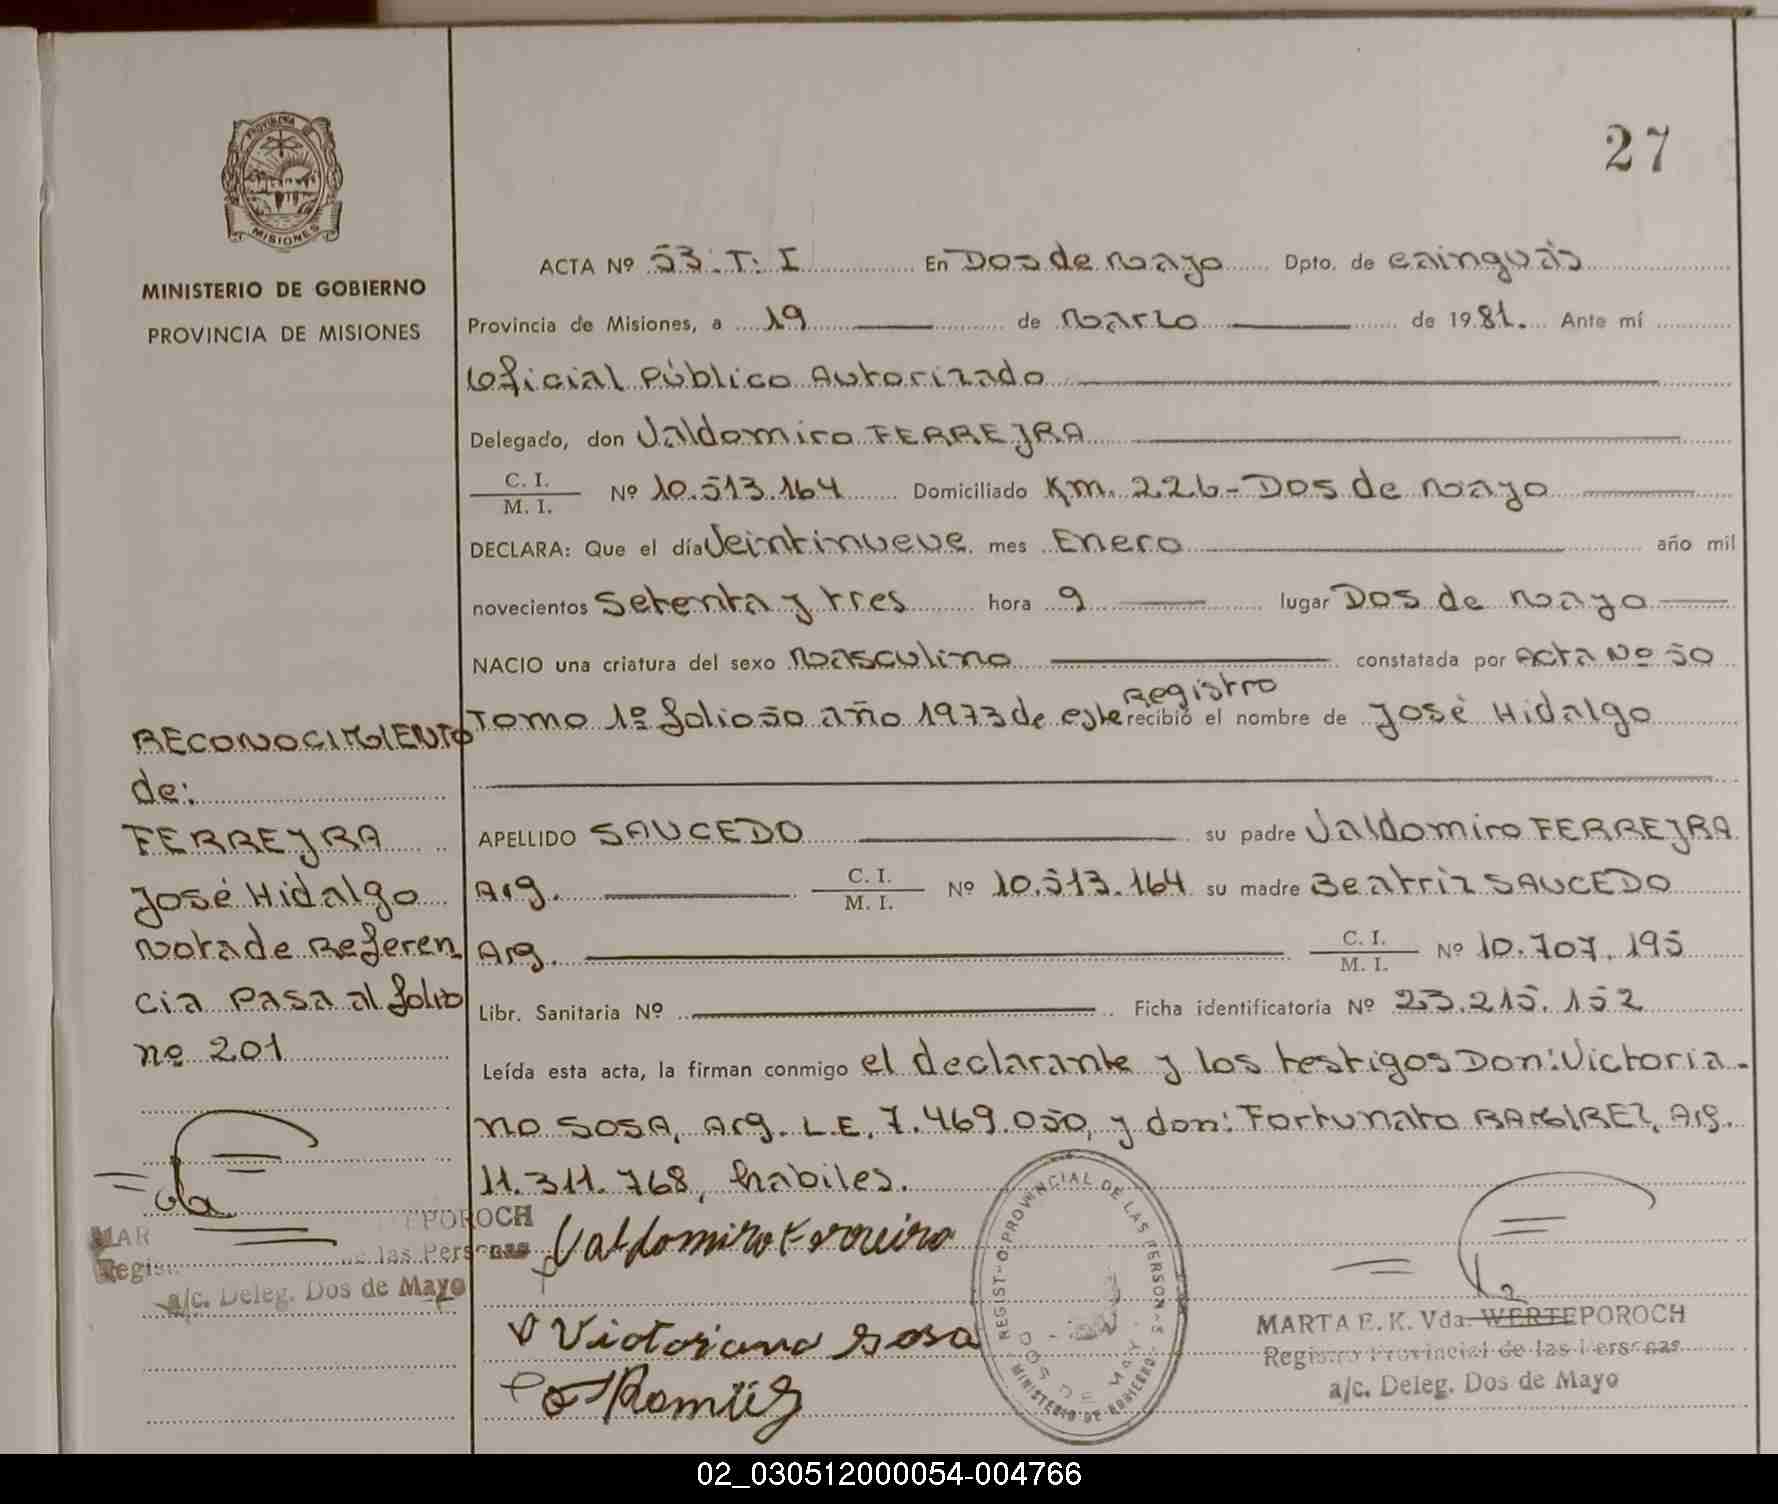 27
PROVINCIA
MISIONES
MINISTERIO DE GOBIERNO
PROVINCIA DE MISIONES
ACTA Nº 53.T.I En Dos de Mayo Dpto. de Cainguás
Provincia de Misiones, a 19 de Marzo de 1981. Ante mí
Oficial Público Autorizado
Delegado, don Valdomiro FERREYRA
C. I.
M. I. Nº 10.513.164 Domiciliado Km. 226-Dos de Mayo
DECLARA: Que el día Veintinueve mes Enero año mil
novecientos Setenta y tres hora 9 lugar Dos de Mayo
NACIO una criatura del sexo Masculino constatada por Acta Nº 50
Tomo 1º folio 50 año 1973 de este Registro recibió el nombre de José Hidalgo
APELLIDO SAUCEDO su padre Valdomiro FERREYRA
Arg. C. I.
M. I. Nº 10.513.164 su madre Beatriz SAUCEDO
Arg. C. I.
M. I. Nº 10.707.195
Libr. Sanitaria Nº Ficha identificatoria Nº 23.215.152
Leída esta acta, la firman conmigo el declarante y los testigos Don: Victoria-
no SOSA, Arg. L.E. 7.469.050, y don: Fortunato RAMIREZ, Arg.
11.311.768, habiles.
RECONOCIMIENTO
de:
FERREYRA
José Hidalgo
Nota de Referen
cia Pasa al folio
nº 201
MAR EPOROCH
Regis de las Personas
a/c. Deleg. Dos de Mayo
Valdomiro Ferreira
Victoriano Sosa
REGISTRO PROVINCIAL DE LAS PERSONAS
DOS DE MAYO
MINISTERIO DE GOBIERNO
MARTA E. K. Vda. WERTEPOROCH
Registro Provincial de las Personas
a/c. Deleg. Dos de Mayo
02_030512000054-004766